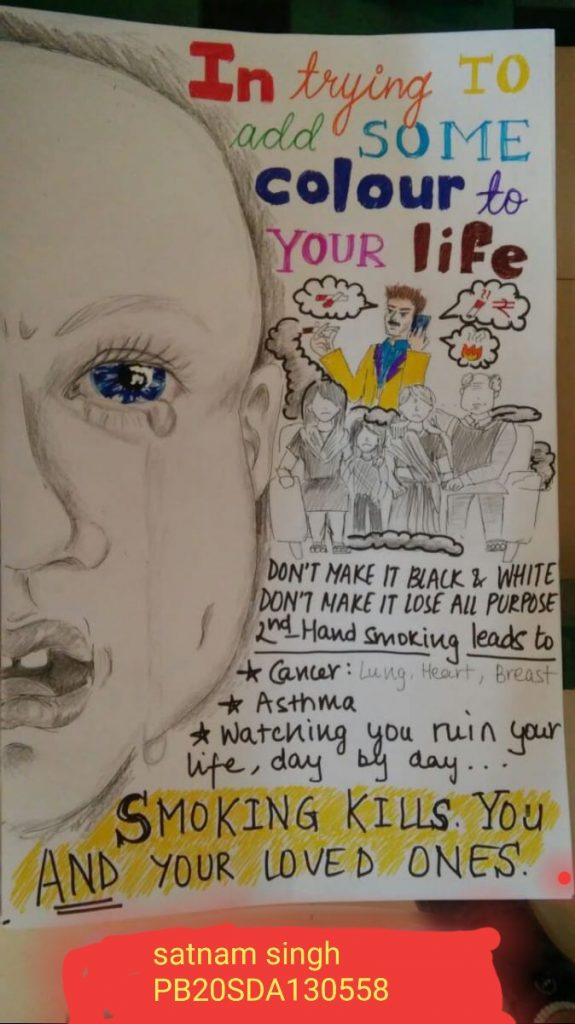 In trying TO
add SOME
colour to
YOUR life
DON'T MAKE IT BLACK & WHITE
DON'T MAKE IT LOSE ALL PURPOSE
2nd Hand smoking leads to
★ Cancer: Lung, Heart, Breast
★ Asthma
★ Watching you ruin your
life, day by day...
SMOKING KILLS. YOU
AND YOUR LOVED ONES.
satnam singh
PB20SDA130558